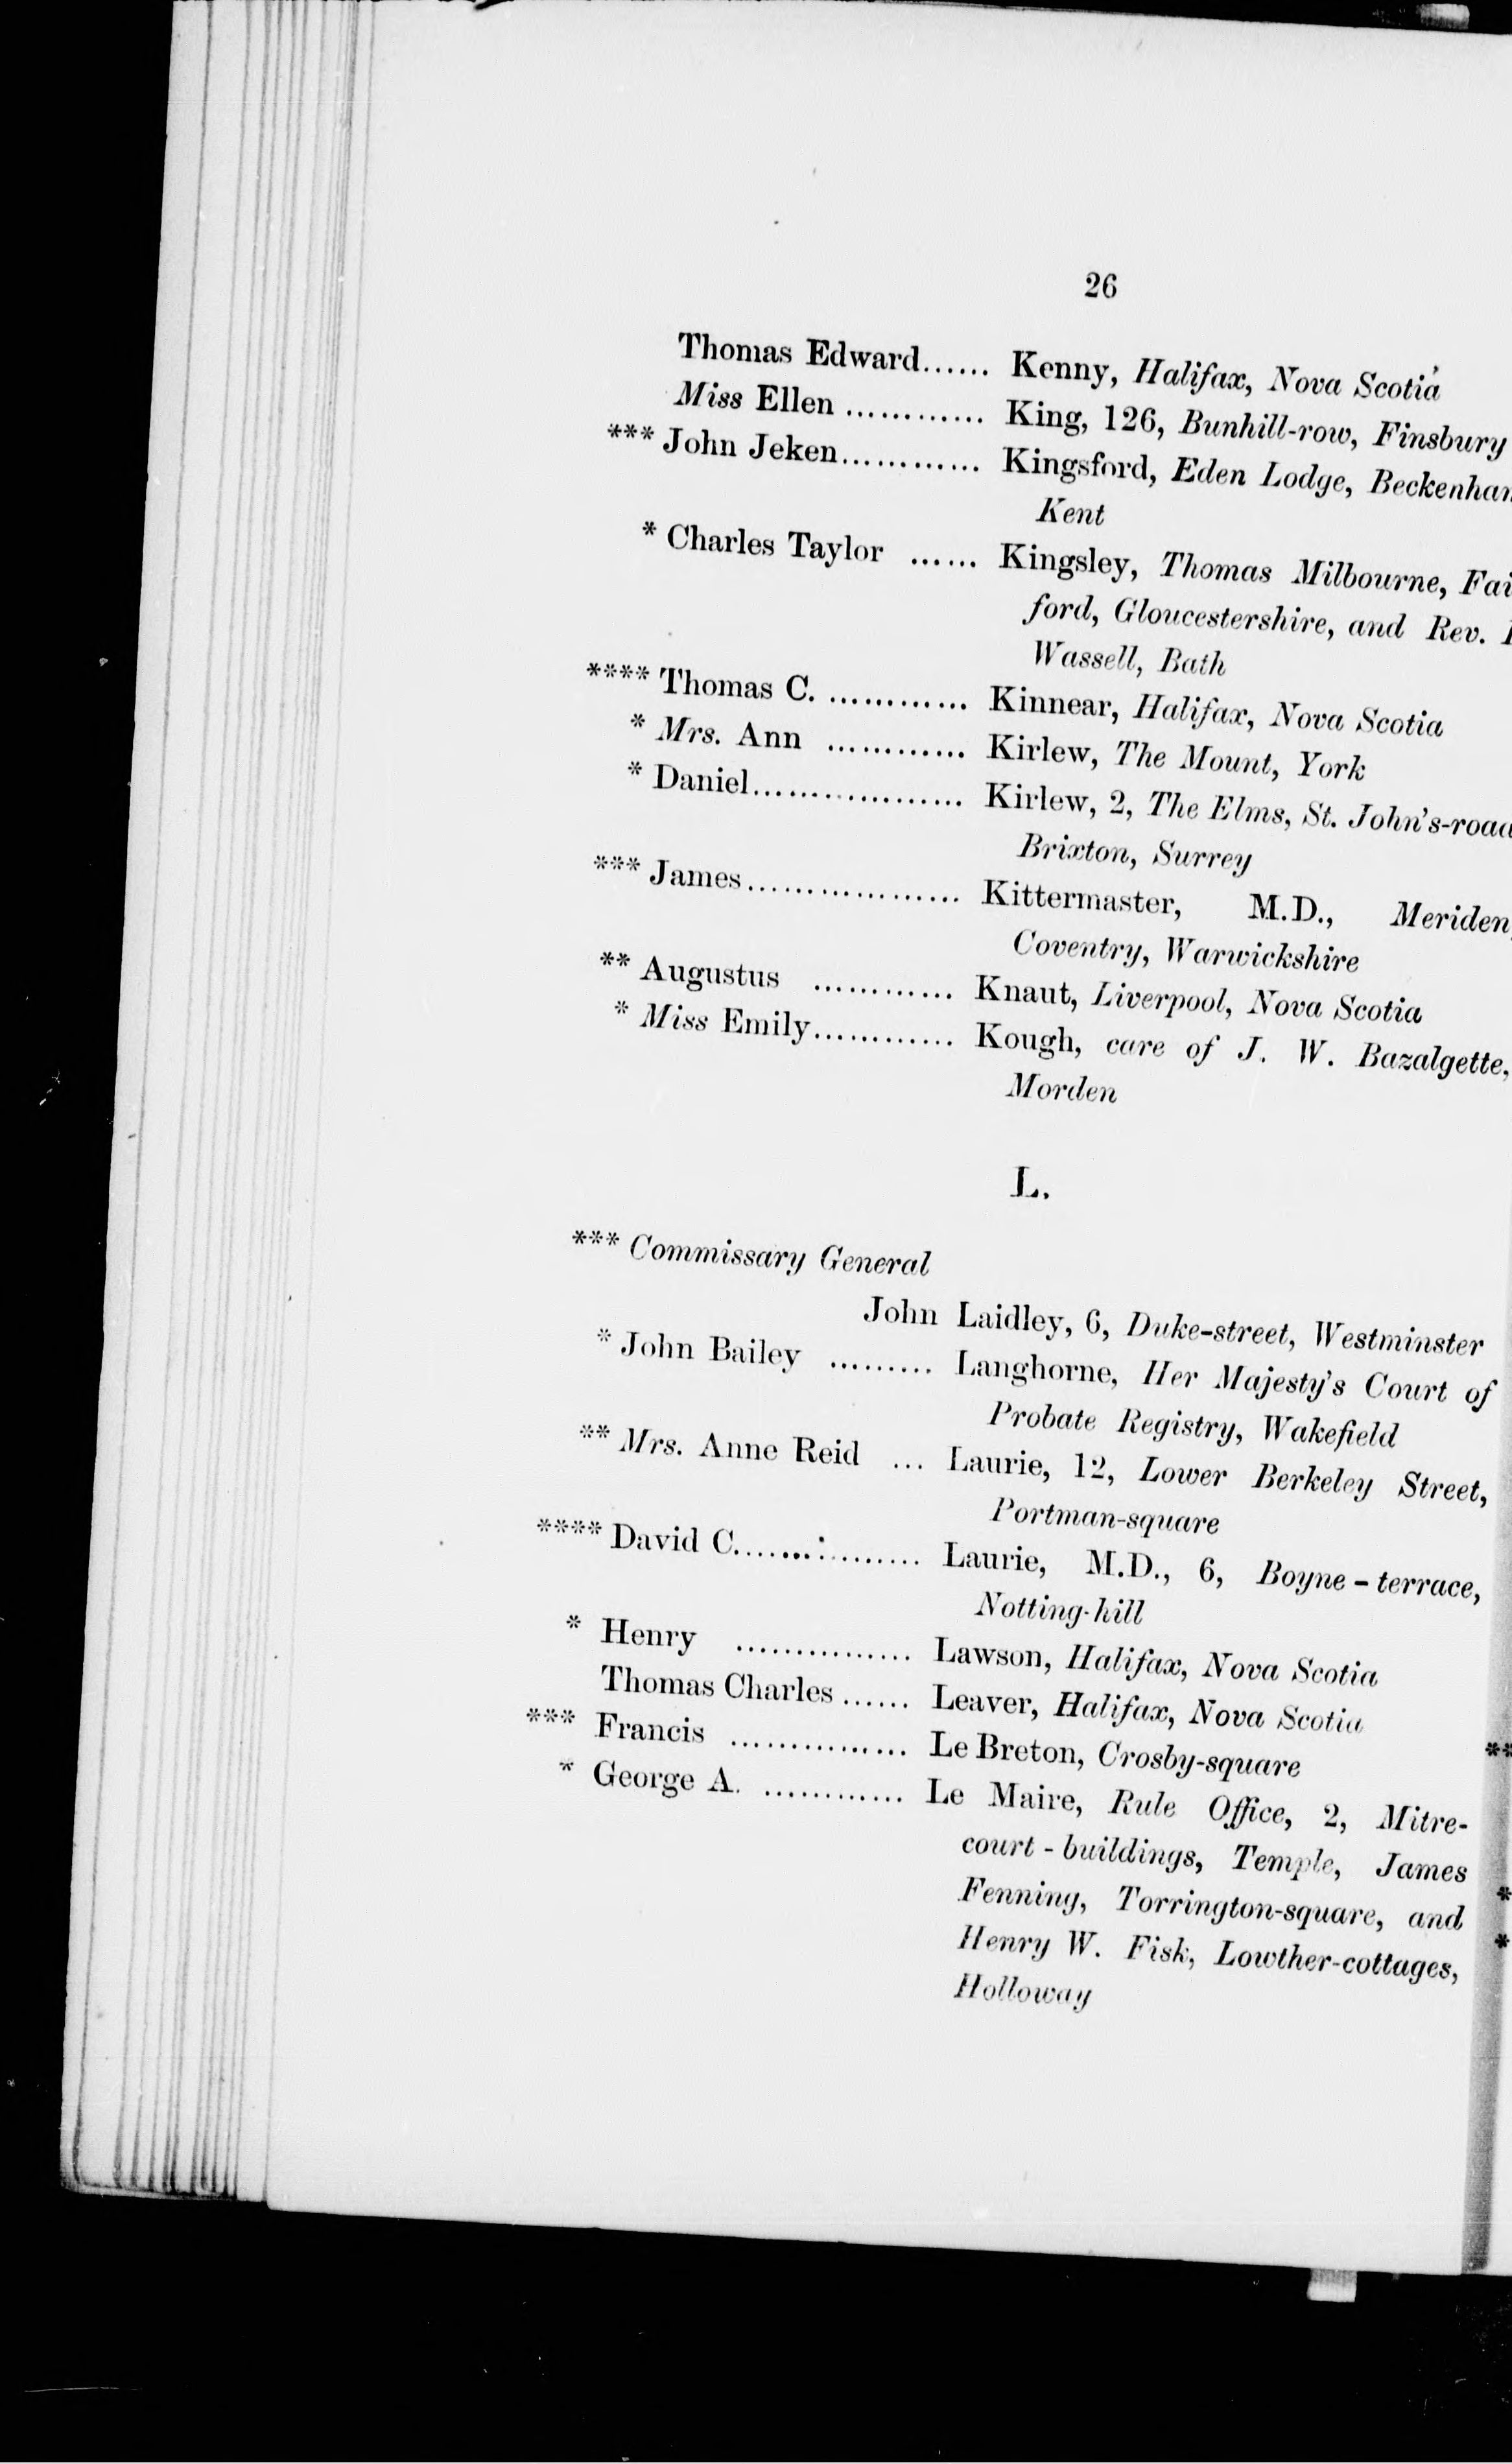 26
Thomas Edward...... Kenny, Halifax, Nova Scotia
Miss Ellen ............ King, 126, Bunhill-row, Finsbury
*** John Jeken............ Kingsford, Eden Lodge, Beckenham
Kent
* Charles Taylor ...... Kingsley, Thomas Milbourne, Fai
ford, Gloucestershire, and Rev.
Wassell, Bath
**** Thomas C. ............ Kinnear, Halifax, Nova Scotia
* Mrs. Ann ............ Kirlew, The Mount, York
* Daniel.................. Kirlew, 2, The Elms, St. John's-road
Brixton, Surrey
*** James.................. Kittermaster, M.D., Meriden,
Coventry, Warwickshire
** Augustus ............ Knaut, Liverpool, Nova Scotia
* Miss Emily............ Kough, care of J. W. Bazalgette,
Morden
L.
*** Commissary General
John Laidley, 6, Duke-street, Westminster
* John Bailey ......... Langhorne, Her Majesty's Court of
Probate Registry, Wakefield
** Mrs. Anne Reid ... Laurie, 12, Lower Berkeley Street,
Portman-square
**** David C................ Laurie, M.D., 6, Boyne-terrace,
Notting-hill
* Henry ............... Lawson, Halifax, Nova Scotia
Thomas Charles ...... Leaver, Halifax, Nova Scotia
*** Francis ............... Le Breton, Crosby-square
* George A. ............ Le Maire, Rule Office, 2, Mitre-
court-buildings, Temple, James
Fenning, Torrington-square, and
Henry W. Fisk, Lowther-cottages,
Holloway